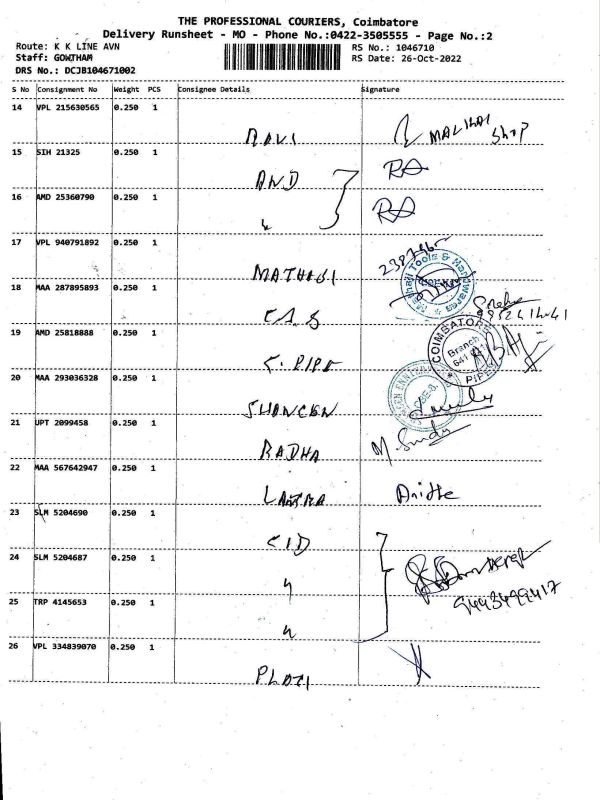 THE PROFESSIONAL COURIERS, Coimbatore
Delivery Runsheet - MO - Phone No.:0422-3505555 - Page No.:2
Route: K K LINE AVN
RS No.: 1046710
Staff: GOWTHAM
RS Date: 26-Oct-2022
DRS No.: DCJB104671002
S No Consignment No Weight PCS Consignee Details Signature
14 VPL 215630565 0.250 1
RAVI MALIHAI Shop
15 SIH 21325 0.250 1
AND
16 AMD 25360790 0.250 1
17 VPL 940791892 0.250 1
MATHAJI
Mathaji Tools & Hardwares
18 MAA 287895893 0.250 1
19 AMD 25818888 0.250 1
C. PIPE
COIMBATORE
Branch
PIPES
20 MAA 293036328 0.250 1
21 UPT 2099458 0.250 1
RADHA
22 MAA 567642947 0.250 1
23 SLM 5204690 0.250 1
CID
24 SLM 5204687 0.250 1
25 TRP 4145653 0.250 1
26 VPL 334839070 0.250 1